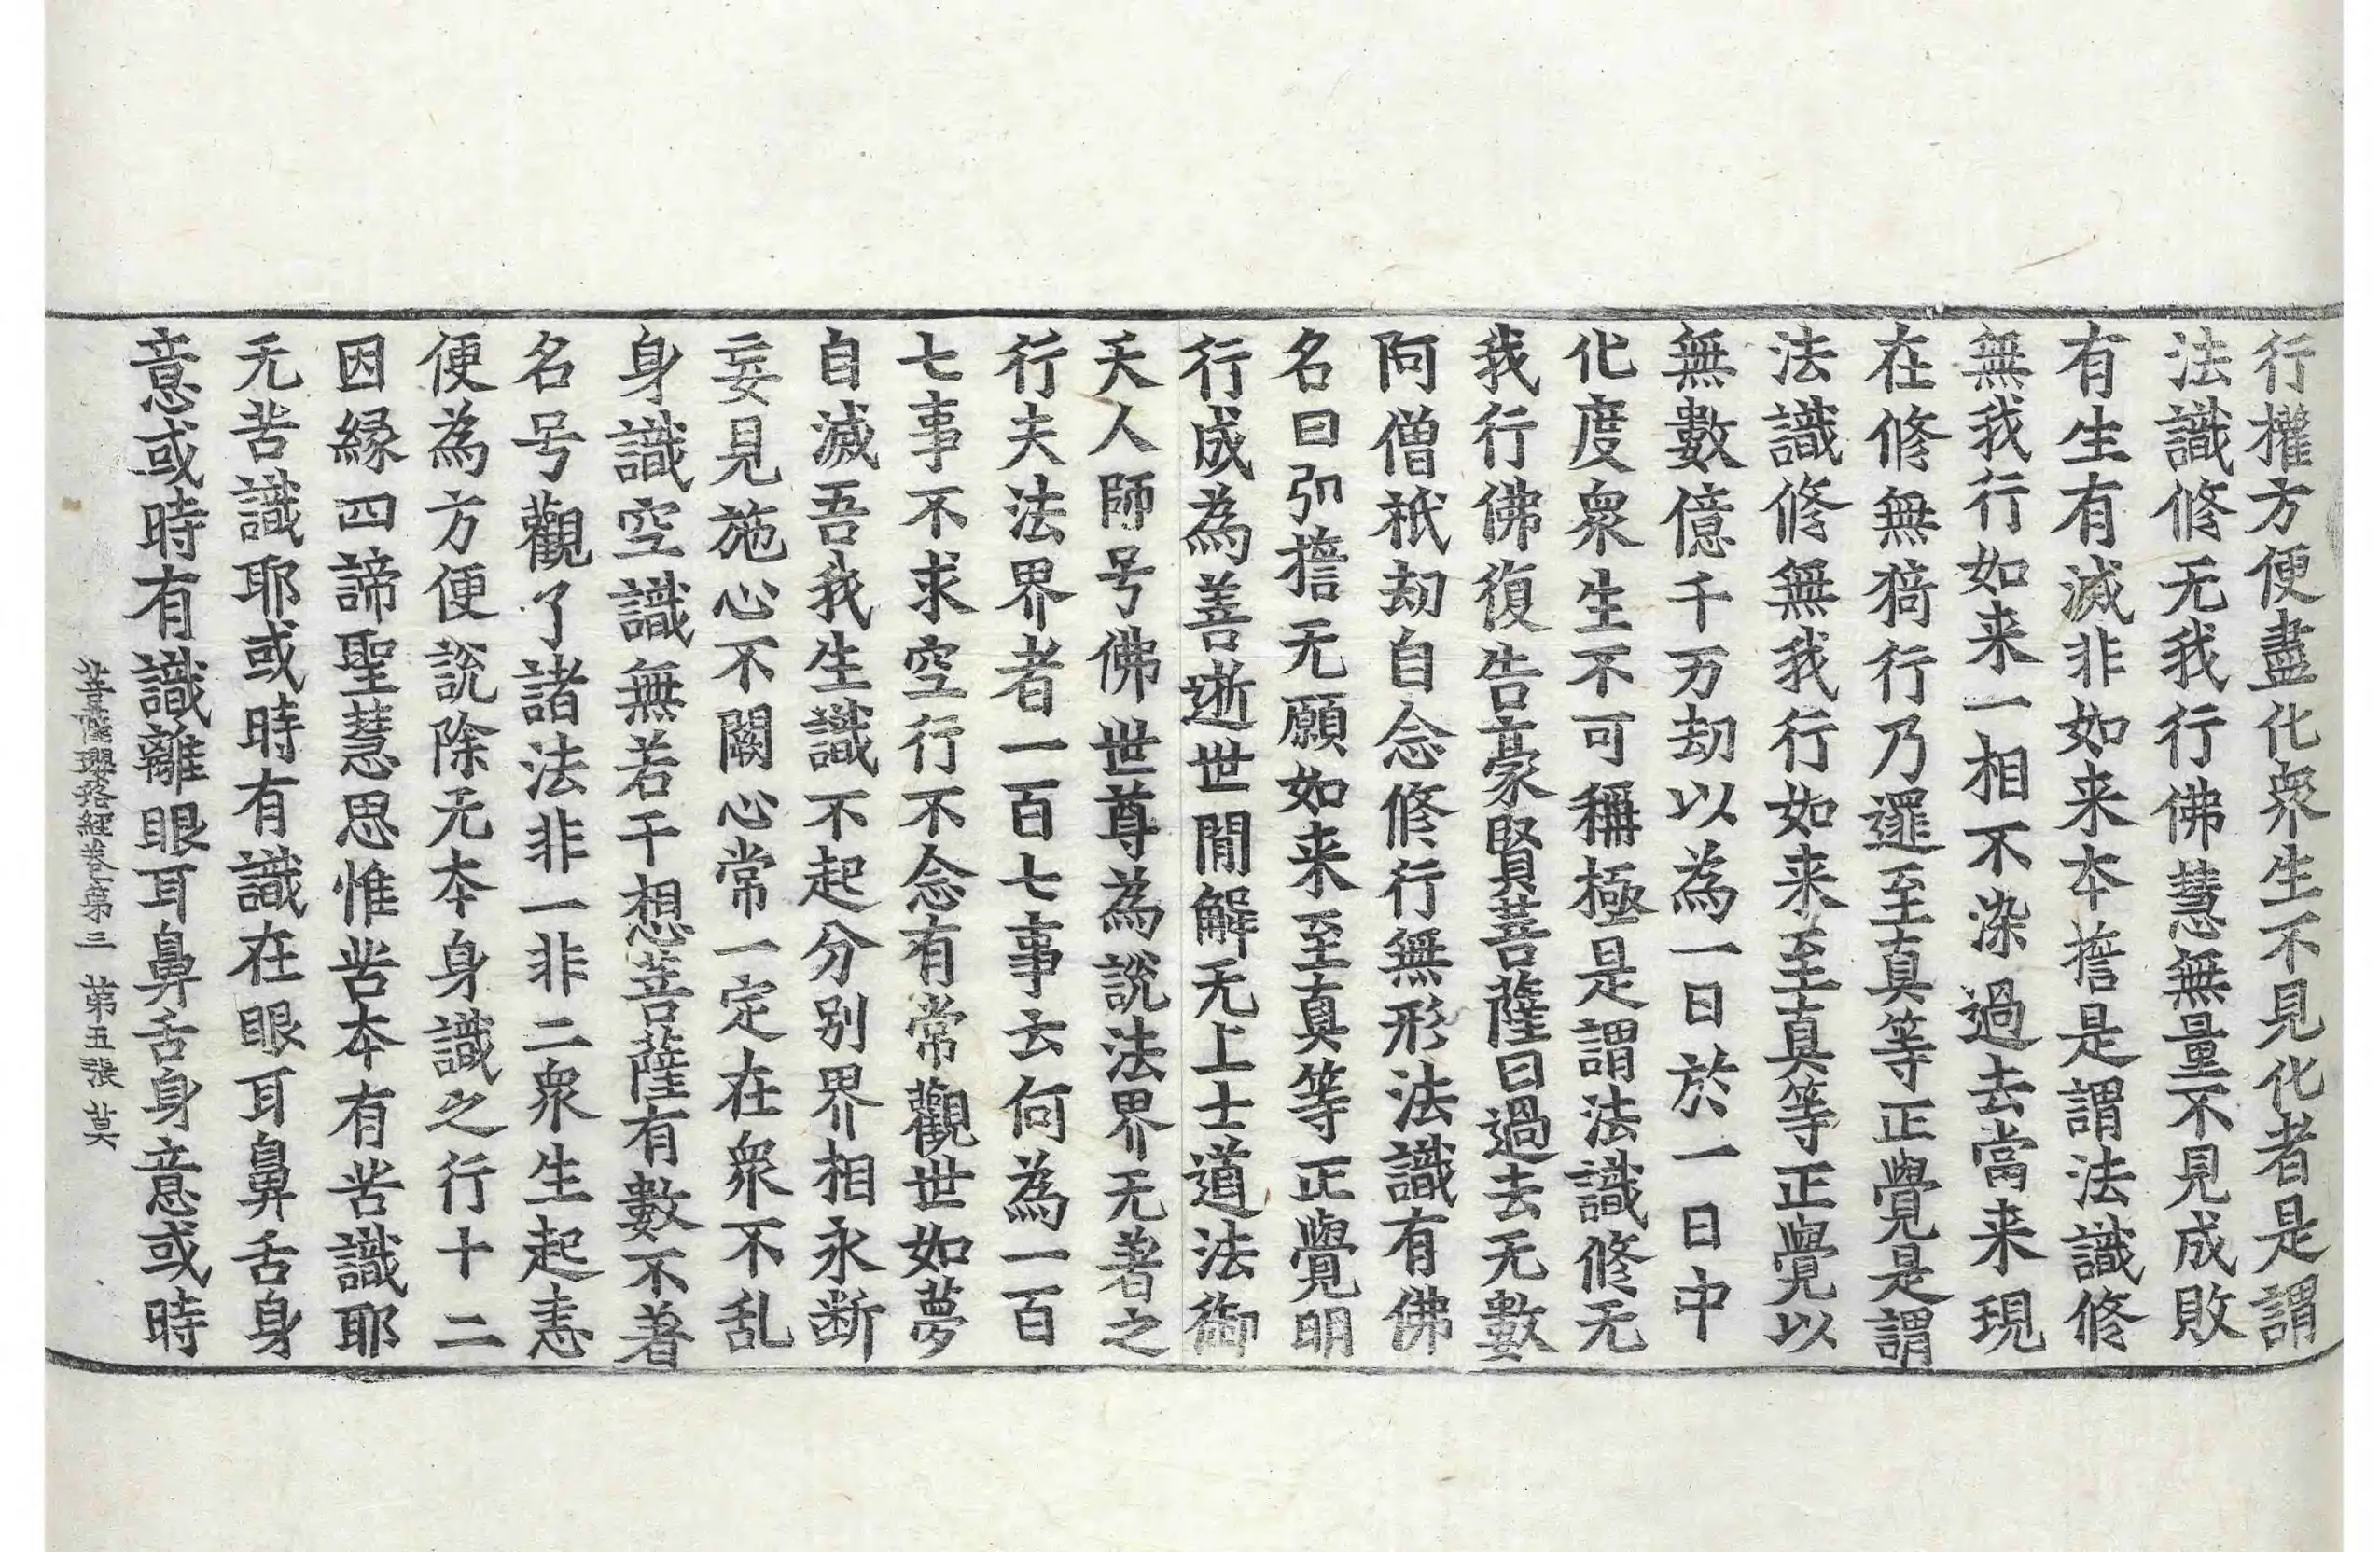 行權方便盡化衆生不見化者是謂
法識修无我行佛慧無量不見成敗
有生有滅非如来本擔是謂法識修
無我行如来一相不染過去當来現
在修無猗行乃還至真等正覺是謂
法識修無我行如来至真等正覺以
無數億千万劫以為一日於一日中
化度衆生不可稱極是謂法識修无
我行佛復告豪賢菩薩曰過去无數
阿僧祇劫自念修行無形法識有佛
名曰弘擔无願如来至真等正覺明
行成為善逝世閒解无上士道法御
天人師号佛世尊為說法界无著之
行夫法界者一百七事云何為一百
七事不求空行不念有常觀世如夢
自滅吾我生識不起分別界相永断
妄見施心不闕心常一定在衆不乱
身識空識無若干想菩薩有數不著
名号觀了諸法非一非二衆生起恚
便為方便說除无本身識之行十二
因緣四諦聖慧思惟苦本有苦識耶
无苦識耶或時有識在眼耳鼻舌身
意或時有識離眼耳鼻舌身意或時
菩薩瓔珞經卷第三 第五張 莫